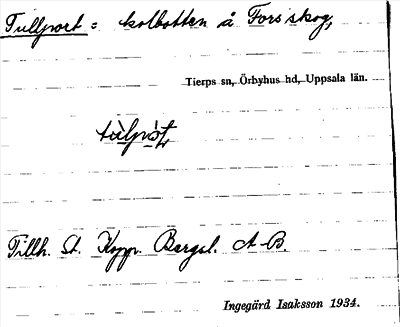 Tullport = kolbotten å Fors skog,
Tierps sn, Örbyhus hd, Uppsala län.
Tillh. St. Kopp. Bergsl. A-B.
Ingegärd Isaksson 1934.